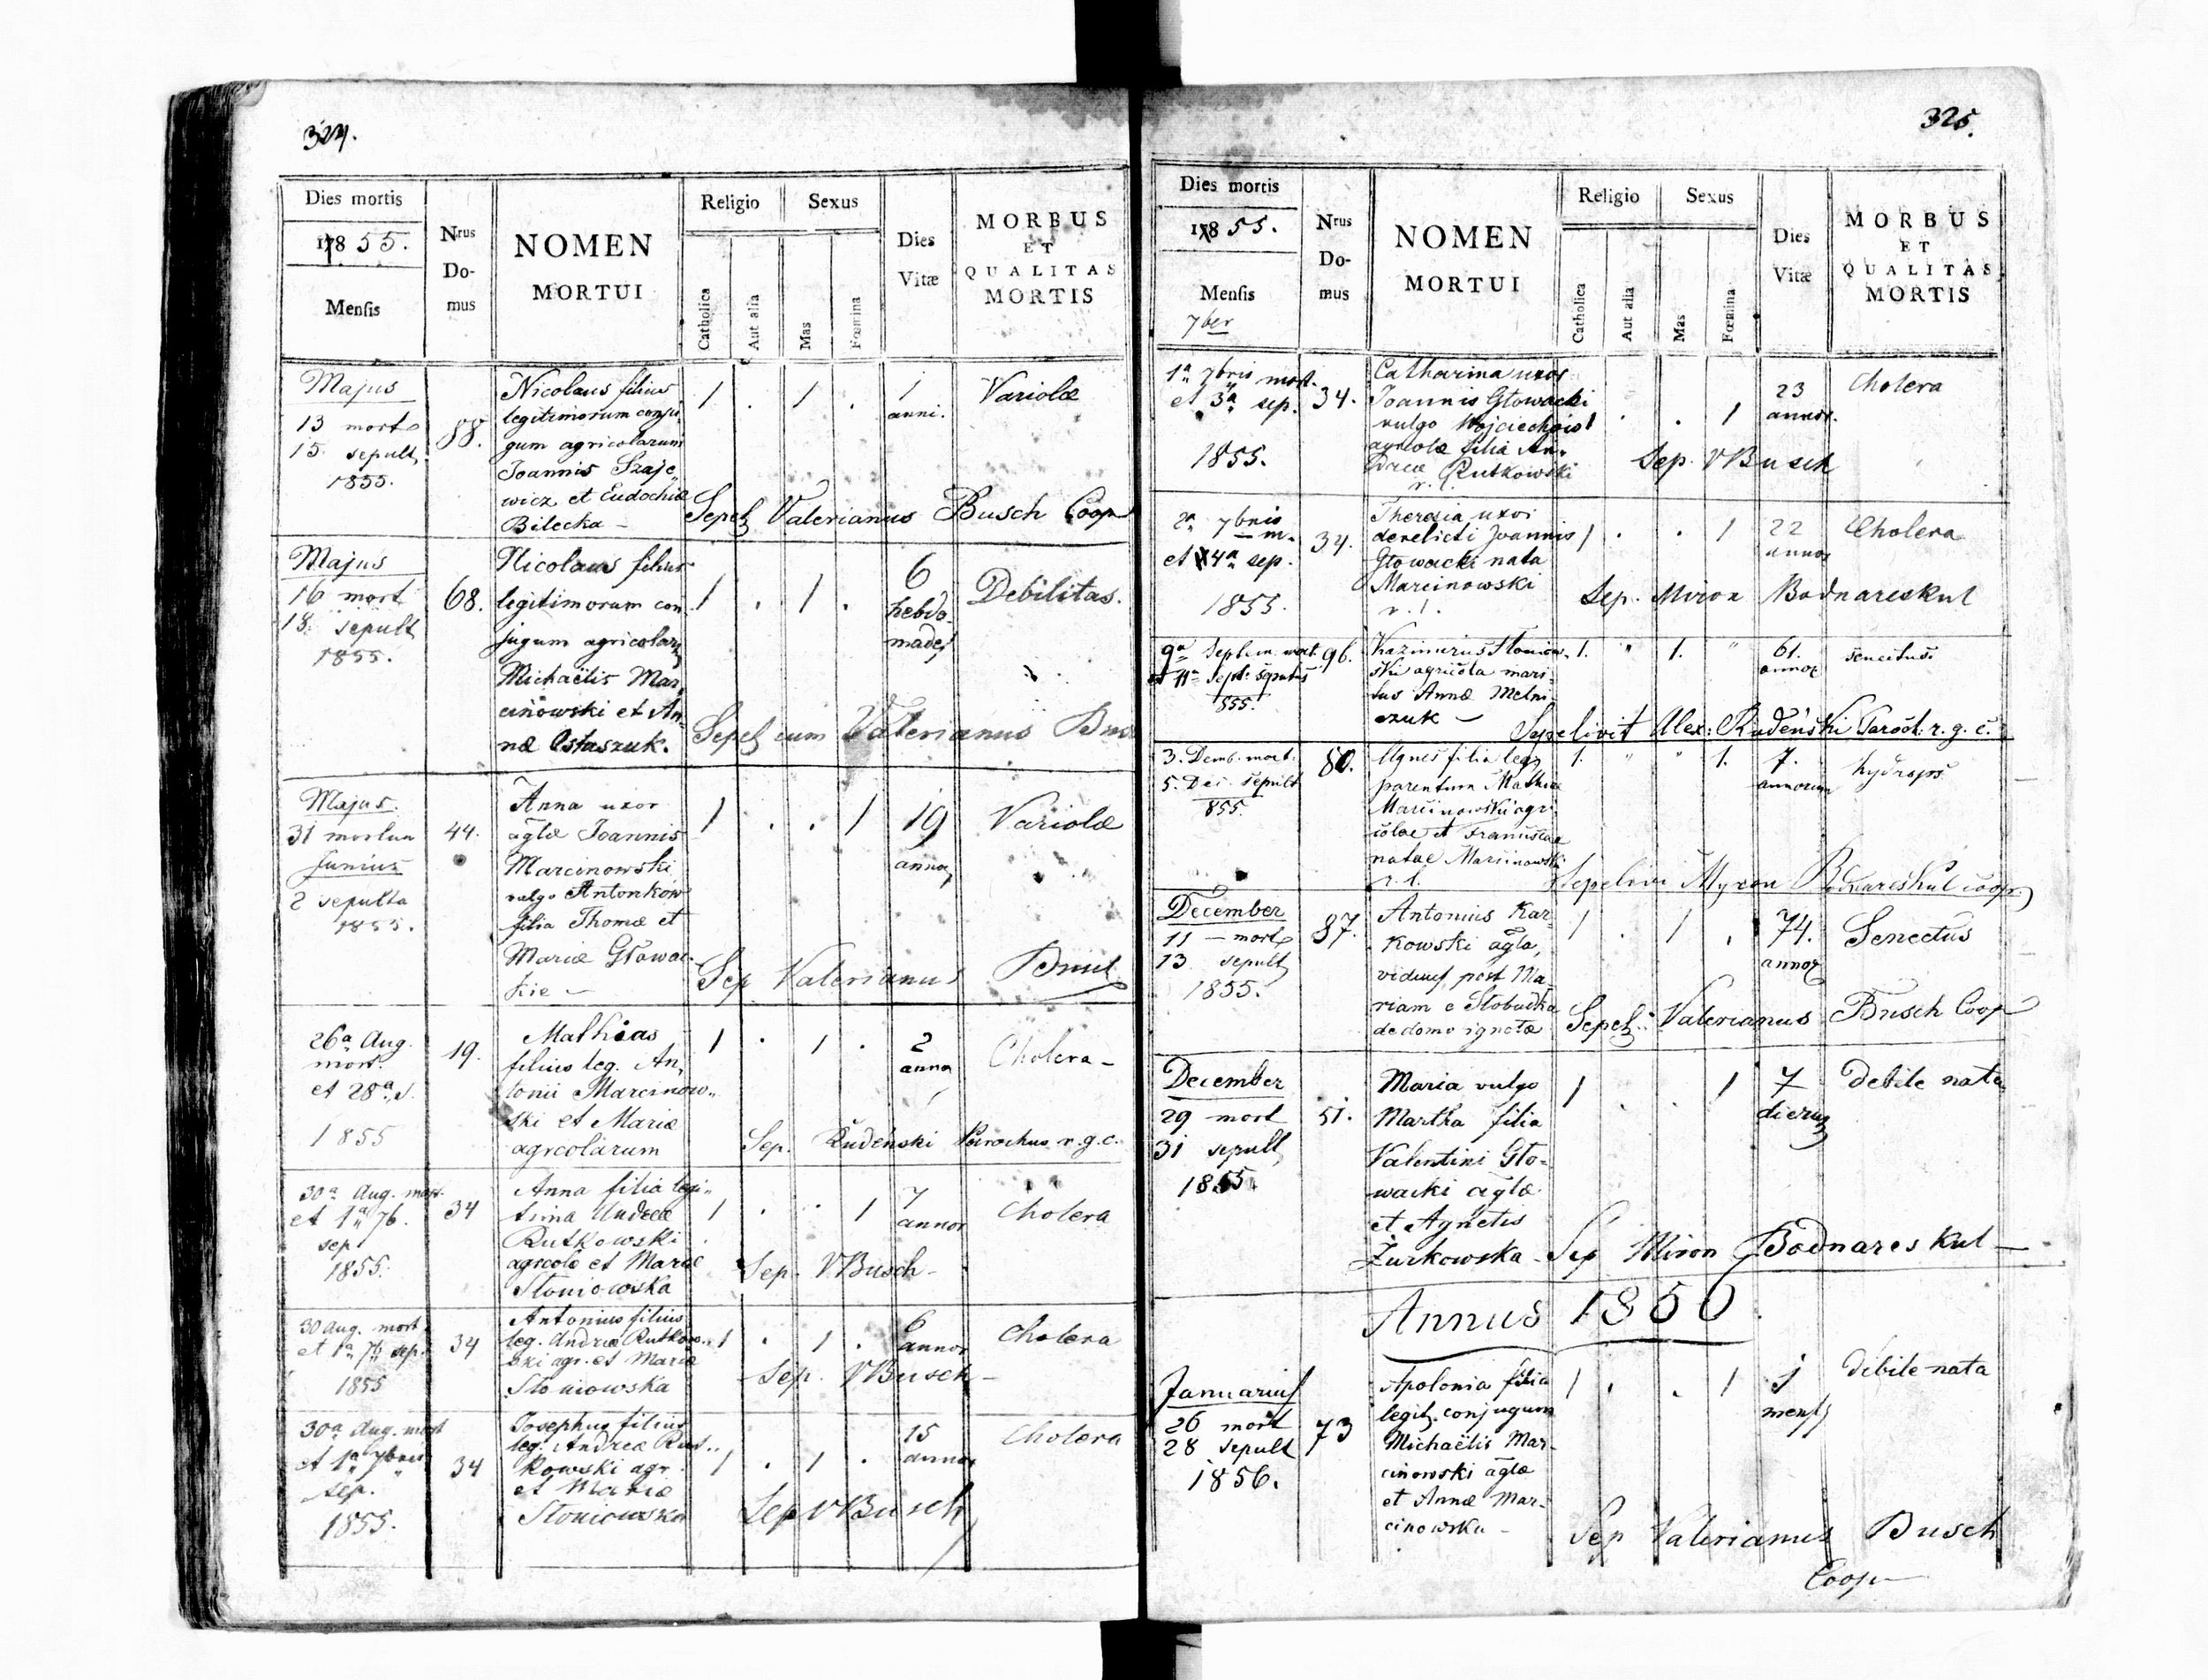 324.
Dies mortis
1855.
Mensis
Nrus Domus
NOMEN
MORTUI
Religio
Catholica
Aut alia
Sexus
Mas
Fœmina
Dies
Vitæ
MORBUS
ET
QUALITAS
MORTIS
Majus
13 mort
15. sepult
1855.
88.
Nicolaus filius
legitimorum conju
gum agricolarum
Joannis Szaje
wicz et Eudochiæ
Bilecka –
1 . 1 .
1
anni.
Variolæ
Sepel Valerianus Busch Coop
Majus
16 mort
18. sepult
1855.
68.
Nicolaus filius
legitimorum con
jugum agricolar
Michaëlis Mar
cinowski et An
næ Ostaszuk.
1 . 1 .
6
hebdo
mades
Debilitas.
Sepel eum Valerianus
Majus.
31 mortua
Junius
2 sepulta
1855.
44.
Anna uxor
aglæ Joannis
Marcinowski
vulgo Antonkow
filia Thomæ et
Mariæ Głowac
kie –
1 . . 1
19
annor
Variolæ
Sep Valerianus
26a Aug.
mort.
et 28a s.
1855
19.
Mathias
filius leg. An,
tonii Marcinow,,
ski et Mariæ
agrcolarum
1 . 1 .
2
annor
Cholera –
Sep. Rudeński Parochus r.g.c.
30a Aug. mort.
et 1a 7b.
sep
1855.
34
Anna filia legi,,
tima Andreæ
Rutkowski
agrcolæ et Mariæ
Słoniowska
1 . . 1
7
annor
Cholera
Sep. VBusch –
30 Aug. mort.
et 1a 7b sep.
1855
34
Antonius filius
leg. Andreæ Rutkow,,
ski agr. et Mariæ
Słoniowska
1 . 1 .
6
annor
Cholera
Sep. VBusch –
30a Aug. mort
et 1a 7bris
sep.
1855.
34
Josephus filius
leg. Andreæ Rut,,
kowski agr.
et Mariæ
Słoniowska
1 . 1 .
15
annor
Cholera
Sep VBusch
325.
Dies mortis
1855.
Mensis
7ber
Nrus Domus
NOMEN
MORTUI
Religio
Catholica
Aut alia
Sexus
Mas
Fœmina
Dies
Vitæ
MORBUS
ET
QUALITAS
MORTIS
1a 7bris mort.
et 3a sep.
1855.
34.
Catharina uxor
Joannis Głowacki
vulgo Wojciechois
agrcolæ filia An,
dreæ Rutkowski
r. l.
1 . . 1
23
annor.
Cholera
Sep. VBusch
2a 7bris
m.
et 4a sep.
1855.
34.
Theresia uxor
derelicti Joannis
Głowacki nata
Marcinowski
r. l.
1 . . 1
22
annor
Cholera
Sep. Miron Bodnareskul
9a Septem. mort.
et 11a Sept. sepultus
855.
96.
Kazimirus Słoniow
ski agricola mari
tus Annæ Melni
czuk –
1. " 1. "
61.
annor
senectus.
Sepelivit Alex: Rudeński Paroch. r.g.c.
3. Demb. mort.
5. Dec. sepult
855.
80.
Agnes filia leg
parentum Mathiæ
Marcinowski agri
colae et Franciscae
natae Marcinowski
r. l.
1. " " 1.
7.
annorum
hydrops.
Sepelivi Myron Bodnareskul coop.
December
11 – mort
13 sepult
1855.
87.
Antonius Kar
kowski agla,
viduus post Ma
riam e Słobudka
de domo ignotæ
1 . 1 .
74.
annor
Senectus
Sepel: Valerianus Busch Coop
December
29 mort
31 sepult
1855.
51.
Maria vulgo
Martha filia
Valentini Gło-
wacki aglæ
et Agnetis
Żurkowska –
1 . . 1
7
dierum
debile nata
Sep Miron Bodnareskul –
Annus 1856.
Januarius
26 mort
28 sepult
1856.
73
Apolonia filia
legit. conjugum
Michaëlis Mar-
cinowski aglæ
et Annæ Mar-
cinowska –
1 . . 1
1
mensis
debile nata
Sep Valerianus Busch
Coop